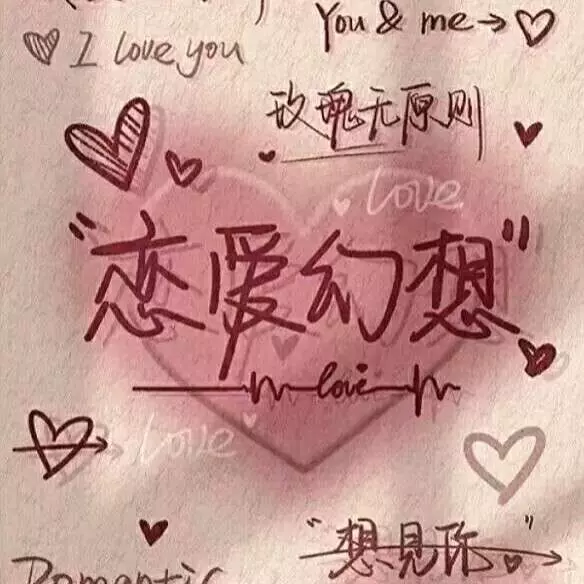 You & me →
I love you
玫瑰无原则
Love
“恋爱幻想”
love
Love
“想见你”
Romantic